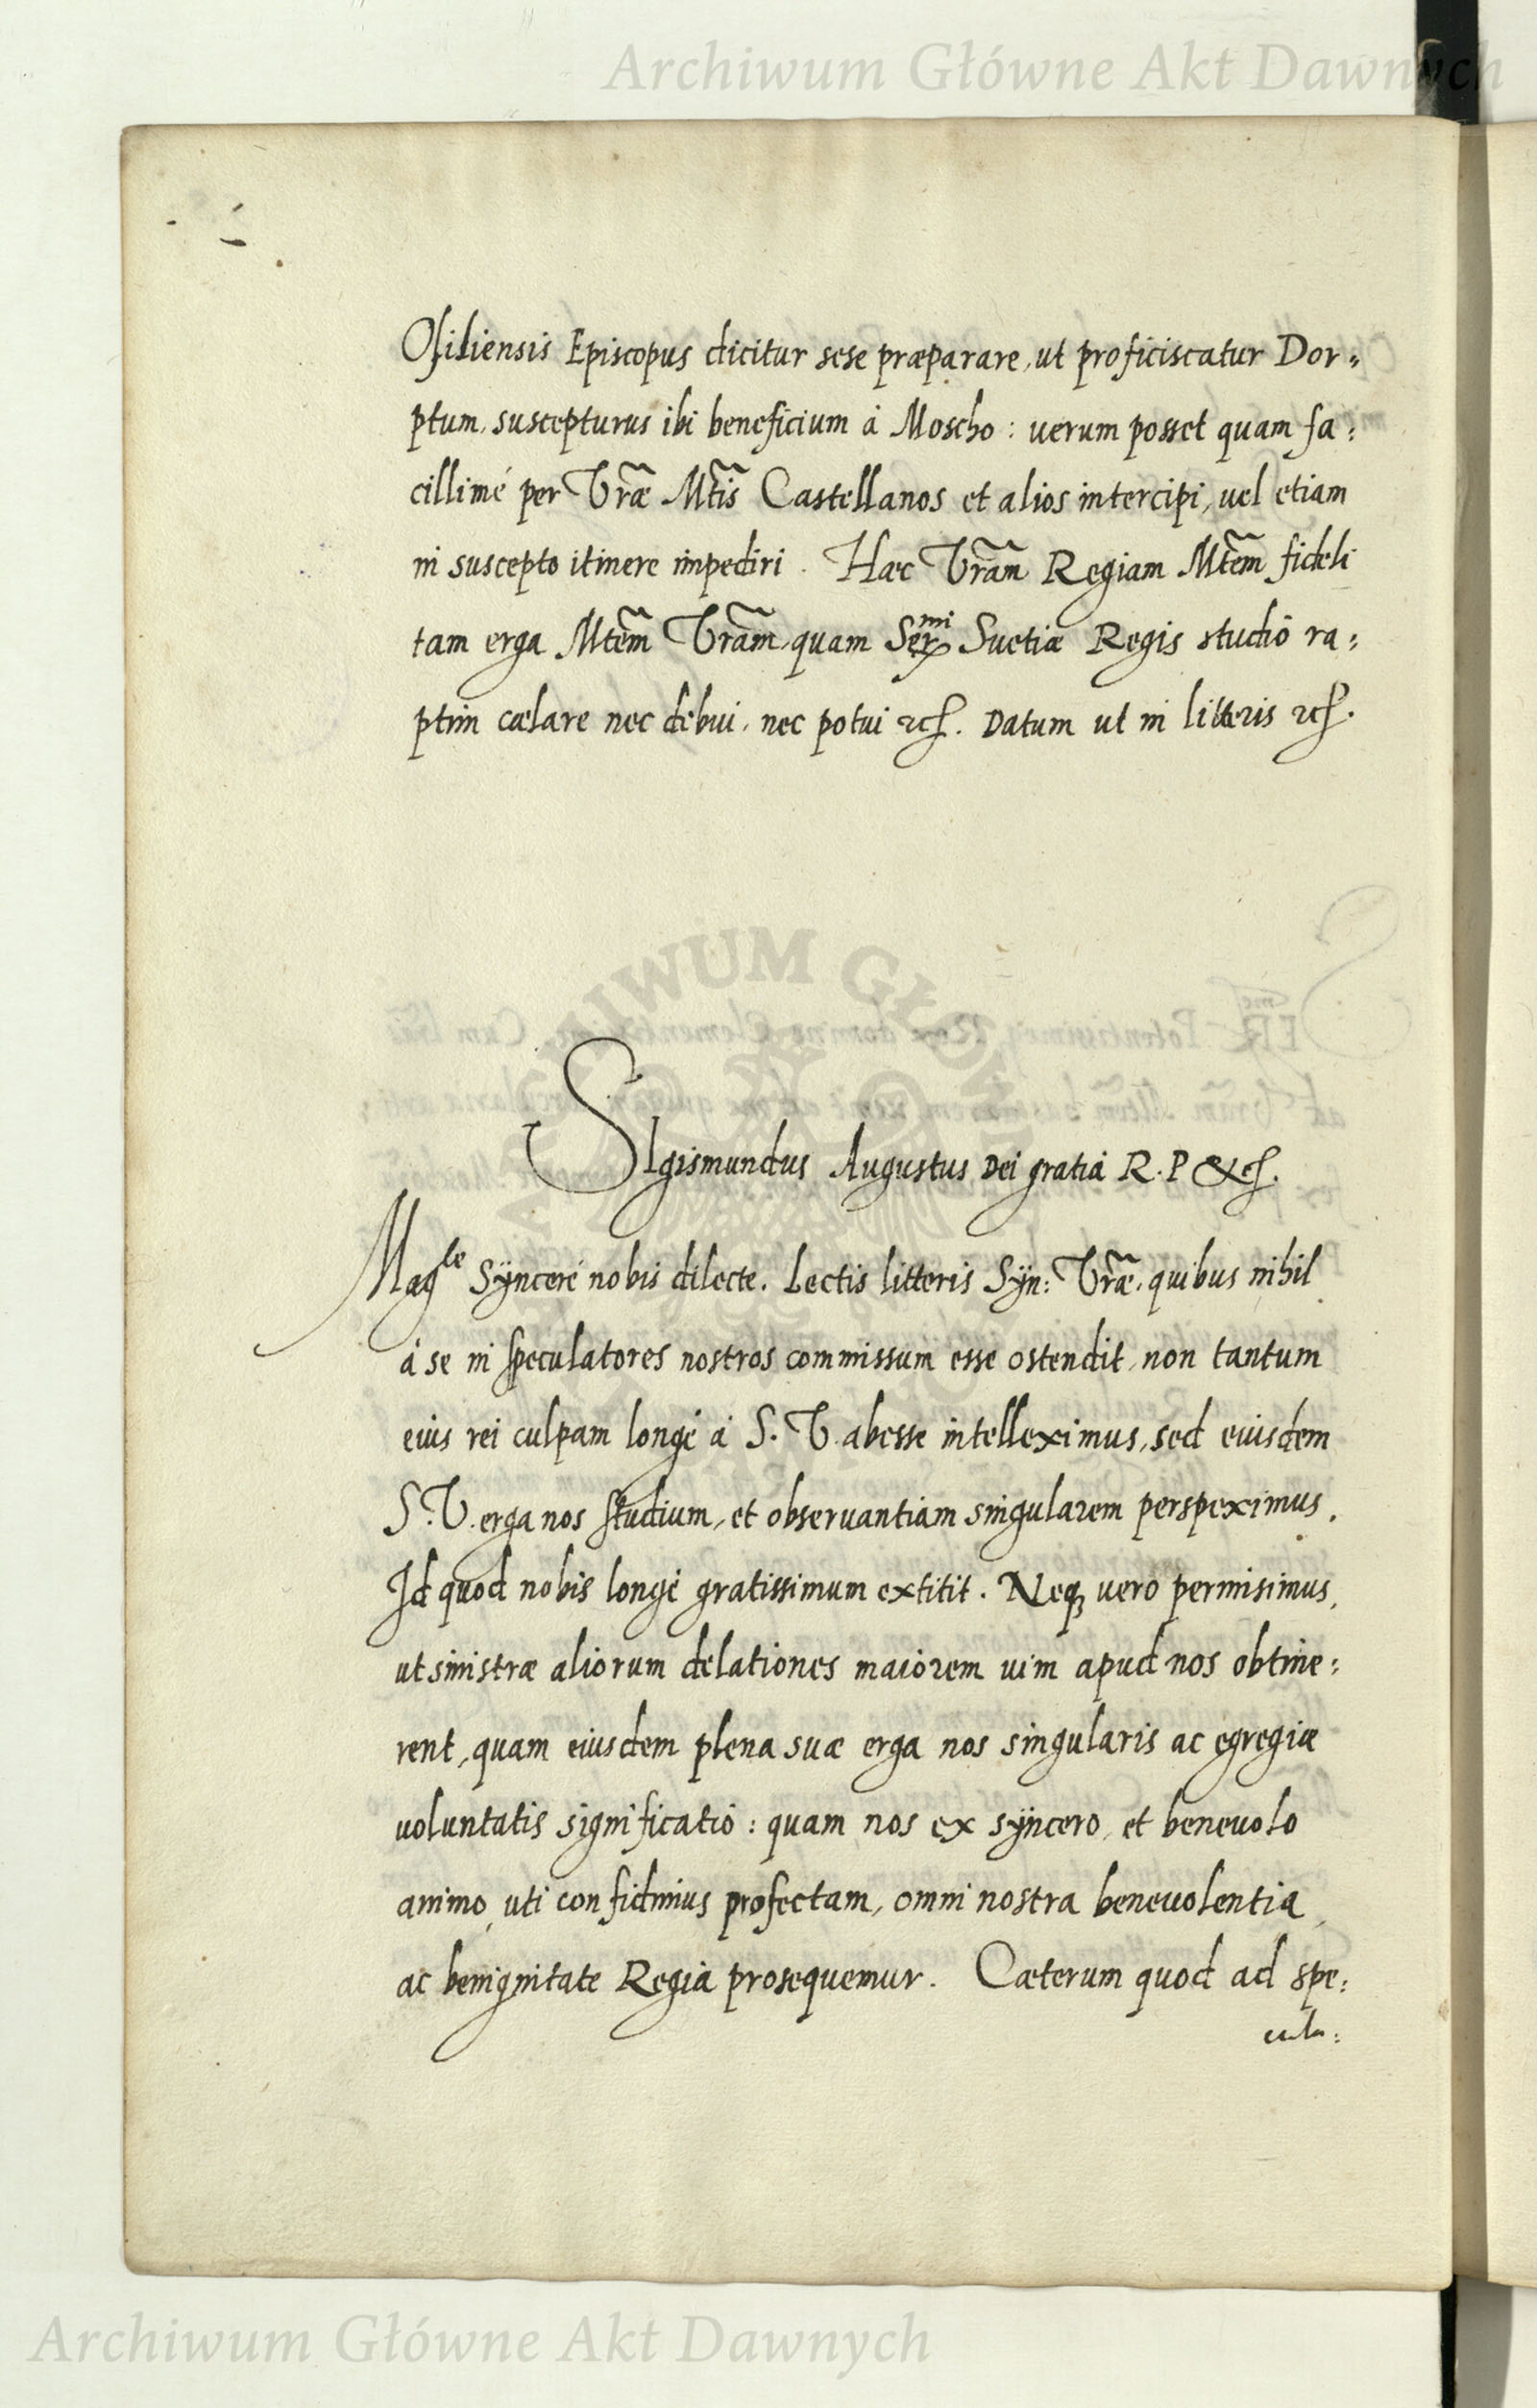 Archiwum Główne Akt Dawnych
Osiliensis Episcopus dicitur sese præparare, ut proficiscatur Dor=
ptum, suscepturus ibi beneficium à Moscho: uerum posset quam fa=
cillimé per Vr̃æ Mt̃is Castellanos et alios intercipi, uel etiam
in suscepto itinere impediri. Hæc Vr̃am Regiam Mt̃em fideli
tam erga Mt̃em Vr̃am, quam Ser^mi Suetiæ Regis studio ra=
ptim cælare nec debui, nec potui etc. Datum ut in litteris etc.
ARCHIWUM GŁÓWNE AKT DAWNYCH
Sigismundus Augustus Dei gratia R. P. &c.
Mag^ce Sÿnceré nobis dilecte. Lectis litteris Sÿn: Vr̃æ, quibus nihil
à se in speculatores nostros commissum esse ostendit, non tantum
eius rei culpam longé à S. V. abesse intelleximus, sed eiusdem
S. V. erga nos studium, et obseruantiam singularem perspeximus.
Id quod nobis longé gratissimum extitit. Neq3 vero permisimus,
ut sinistræ aliorum delationes maiorem uim apud nos obtine=
rent, quam eiusdem plena suæ erga nos singularis ac egregiæ
uoluntatis significatio: quam nos ex sÿncero, et beneuolo
animo, uti confidimus profectam, omni nostra beneuolentia,
ac benignitate Regia prosequemur. Cæterum quod ad spe=
cula=
Archiwum Główne Akt Dawnych